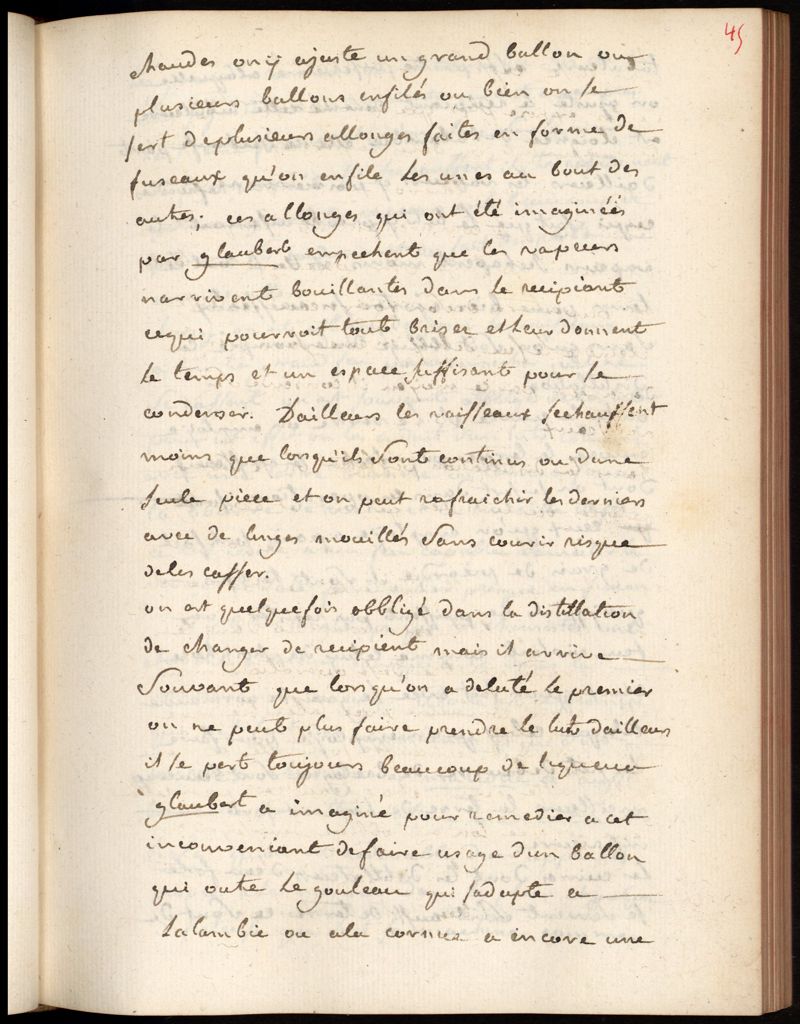 45
chaudes on y ajuste un grand ballon ou
plusieurs ballons enfilés ou bien on se
sert deplusieurs allonges faites en forme de
fuseaux qu'on enfile les unes au bout des
autres; ces allonges qui ont été imaginéés
par glaubert empechent que les vapeurs
narrivent bouillantes dans le recipiant
cequi pourroit tout briser et leur donnent
le temps et un espace suffisant pour se
condenser. Dailleurs les vaisseaux sechauffent
moins que lorsqu'ils sont continus ou dune
seule piece et on peut rafraichir les derniers
avec de linges mouillés sans courir risque
deles casser.
on est quelquefois obbligé dans la distillation
de changer de recipient mais il arrive
souvant que lorsqu'on a deluté le premier
on ne peut plus faire prendre le lut dailleurs
il se pert toujours beaucoup de liqueur
glaubert a imaginé pour remedier a cet
inconveniant defaire usage dun ballon
qui outre le gouleau qui sadapte a
Lalambic ou ala cornue a encore une